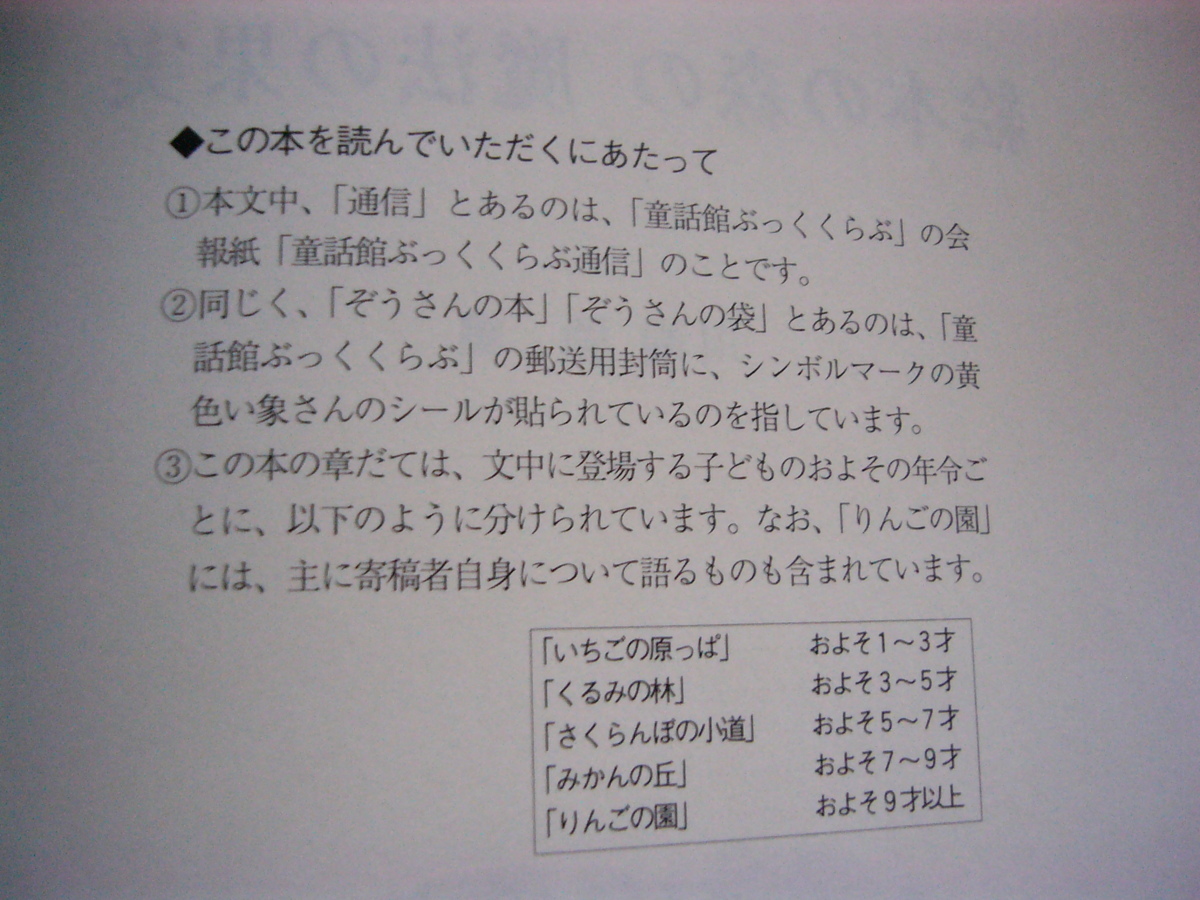 ◆この本を読んでいただくにあたって
①本文中、「通信」とあるのは、「童話館ぶっくくらぶ」の会
報紙「童話館ぶっくくらぶ通信」のことです。
②同じく、「ぞうさんの本」「ぞうさんの袋」とあるのは、「童
話館ぶっくくらぶ」の郵送用封筒に、シンボルマークの黄
色い象さんのシールが貼られているのを指しています。
③この本の章だては、文中に登場する子どものおよその年令ご
とに、以下のように分けられています。なお、「りんごの園」
には、主に寄稿者自身について語るものも含まれています。
「いちごの原っぱ」 およそ1～3才
「くるみの林」 およそ3～5才
「さくらんぼの小道」 およそ5～7才
「みかんの丘」 およそ7～9才
「りんごの園」 およそ9才以上